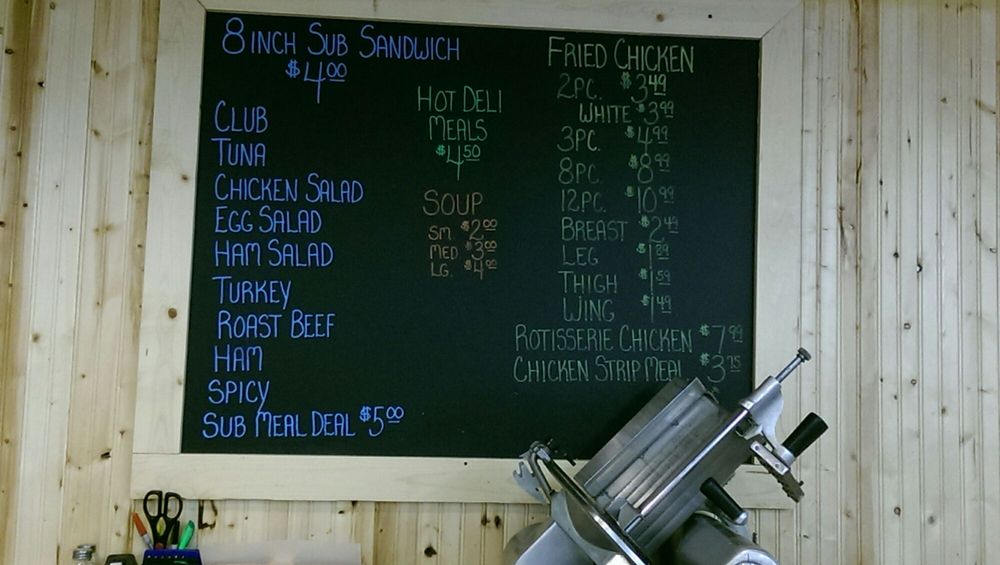 8 INCH SUB SANDWICH
$4.00
CLUB
TUNA
CHICKEN SALAD
EGG SALAD
HAM SALAD
TURKEY
ROAST BEEF
HAM
SPICY
SUB MEAL DEAL $5.00
HOT DELI
MEALS
$4.50
SOUP
SM. $2.00
MED. $3.00
LG. $4.00
FRIED CHICKEN
2PC. $3.49
WHITE $3.99
3PC. $4.99
8PC. $8.99
12PC. $10.99
BREAST $2.49
LEG $1.89
THIGH $1.59
WING $1.49
ROTISSERIE CHICKEN $7.99
CHICKEN STRIP MEAL $3.75